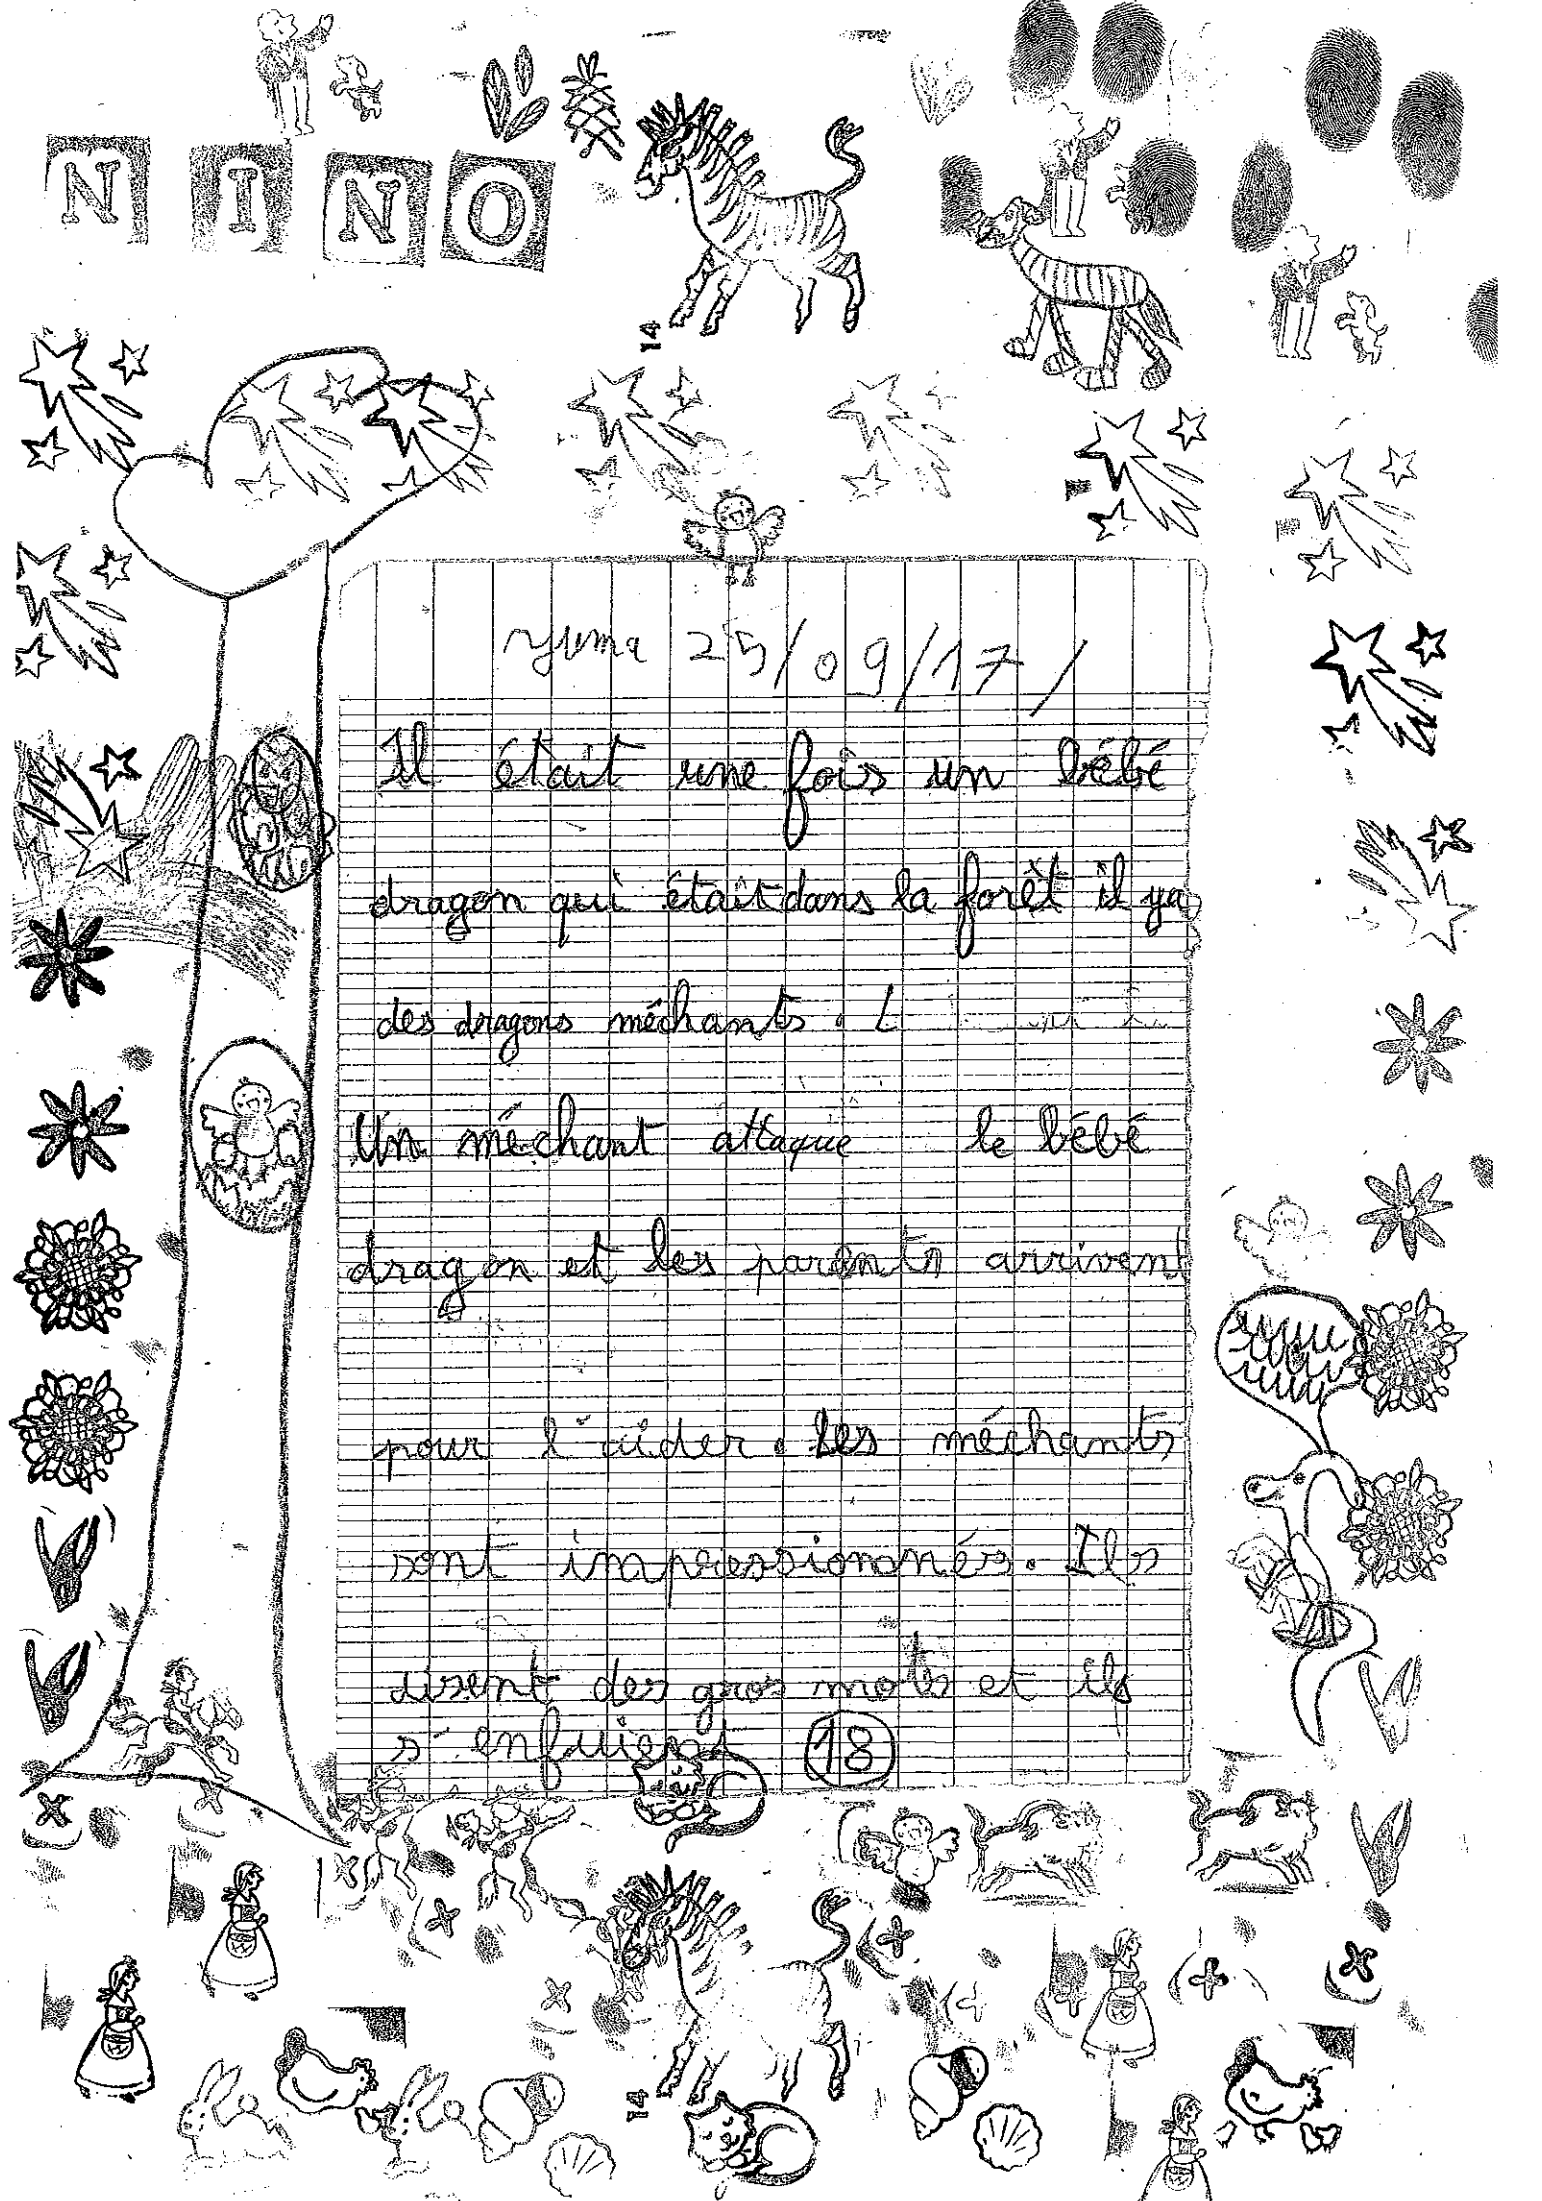 NINO
14
yuma 25/09/17/
Il était une fois un bébé
dragon qui était dans la forêt il ya
des dragons méchants. L
Un méchant attaque le bébé
dragon et les parents arrivent
pour l'aider. Les méchants
sont impressionnés. Ils
disent des gros mots et ils
s'enfuient 18
14